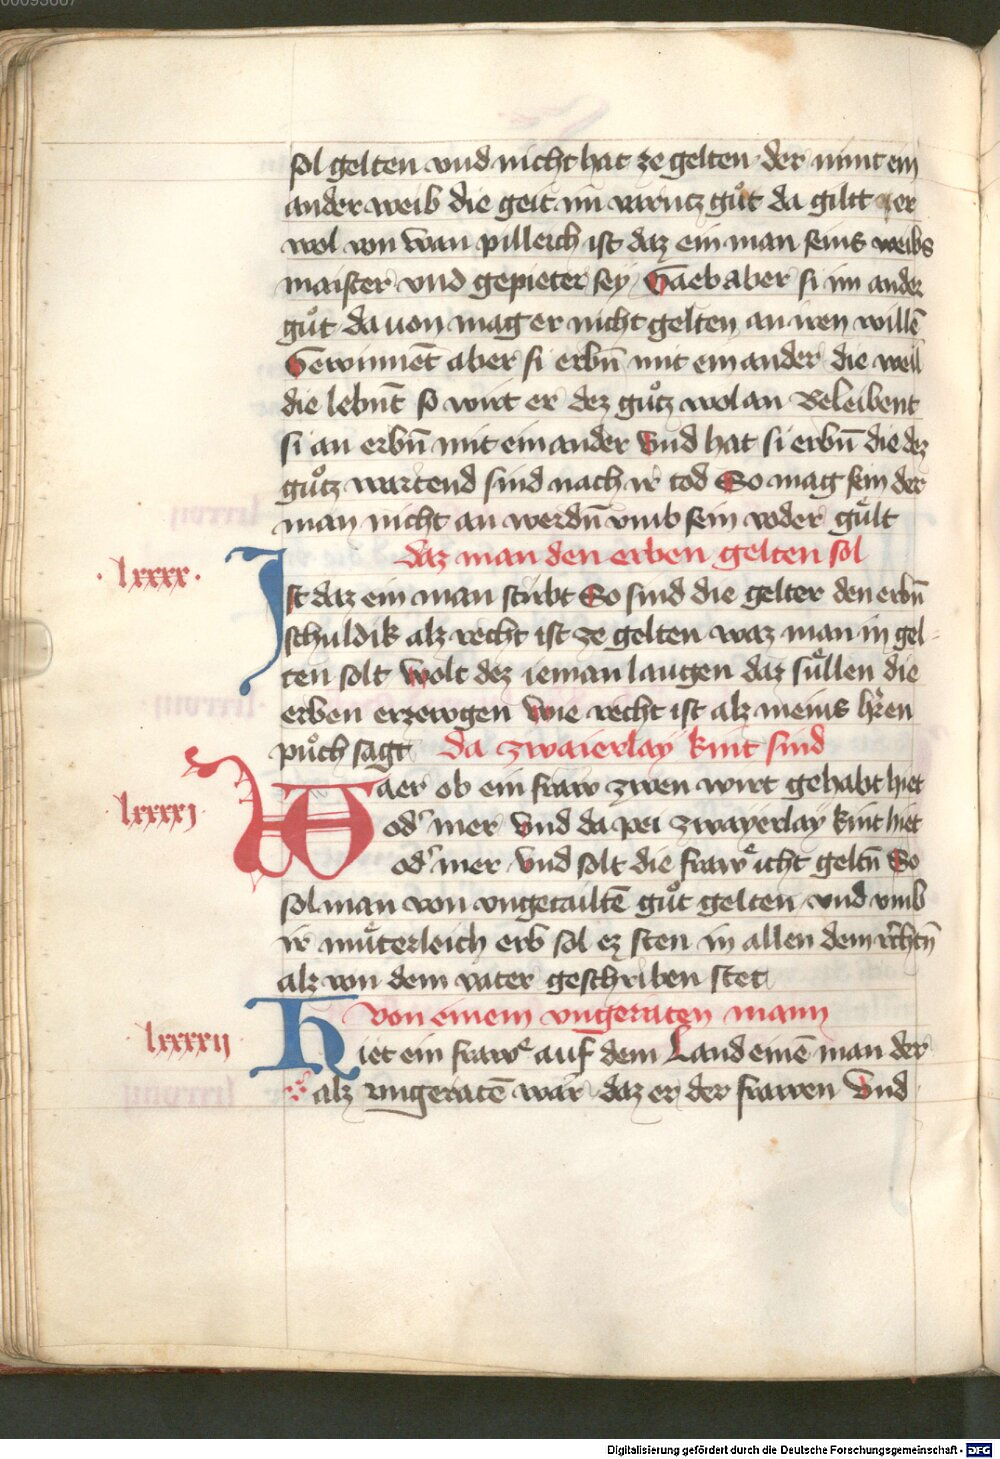 00093607
sol gelten vnd nicht hat ze gelten der nimt ein
ander weib die geit im varntz gůt da giltt er
wol von wan pilleich ist daz ein man seins weibs
maister vnd gepieter sey Gaeb aber si im ander
gůt da uon mag er nicht gelten an iren willē
Gewinnēt aber si erbn̄ mit ein ander die weil
die lebnt̄ so wirt er dez gůtz wol an Beleibent
si an erbn̄ mit ein ander Vnd hat si erbn̄ die dez
gůtz wartend sind nach ir tod So mag sein der
man nicht an werdn̄ vmb sein voder gült
daz man den erben gelten sol
·lxxxx·
Ist daz ein man stirbt So sind die gelter den erbn̄
schuldik alz recht ist ze gelten waz man in gel-
ten solt Wolt dez ieman laugen daz sullen die
erben erzewgen Wie recht ist alz meins hr̄ren
půch sagt da zwaierlay kint sind
lxxxxj
Waer ob ein fraw zwen wirt gehabt hiet
od' mer Vnd da pei zwayerlay kint hiet
od' mer vnd solt die fraw icht geltn̄ So
sol man von vngetailtē gůt gelten vnd vmb
ir můterleich erb sol ez sten in allen dem rechtn̄
alz von dem vater geschriben stet
lxxxxij
von einem vngeraten mann
Hiet ein fraw auf dem Land einē man der
alz vngeratē wär daz er der frawen Vnd
Digitalisierung gefördert durch die Deutsche Forschungsgemeinschaft - DFG